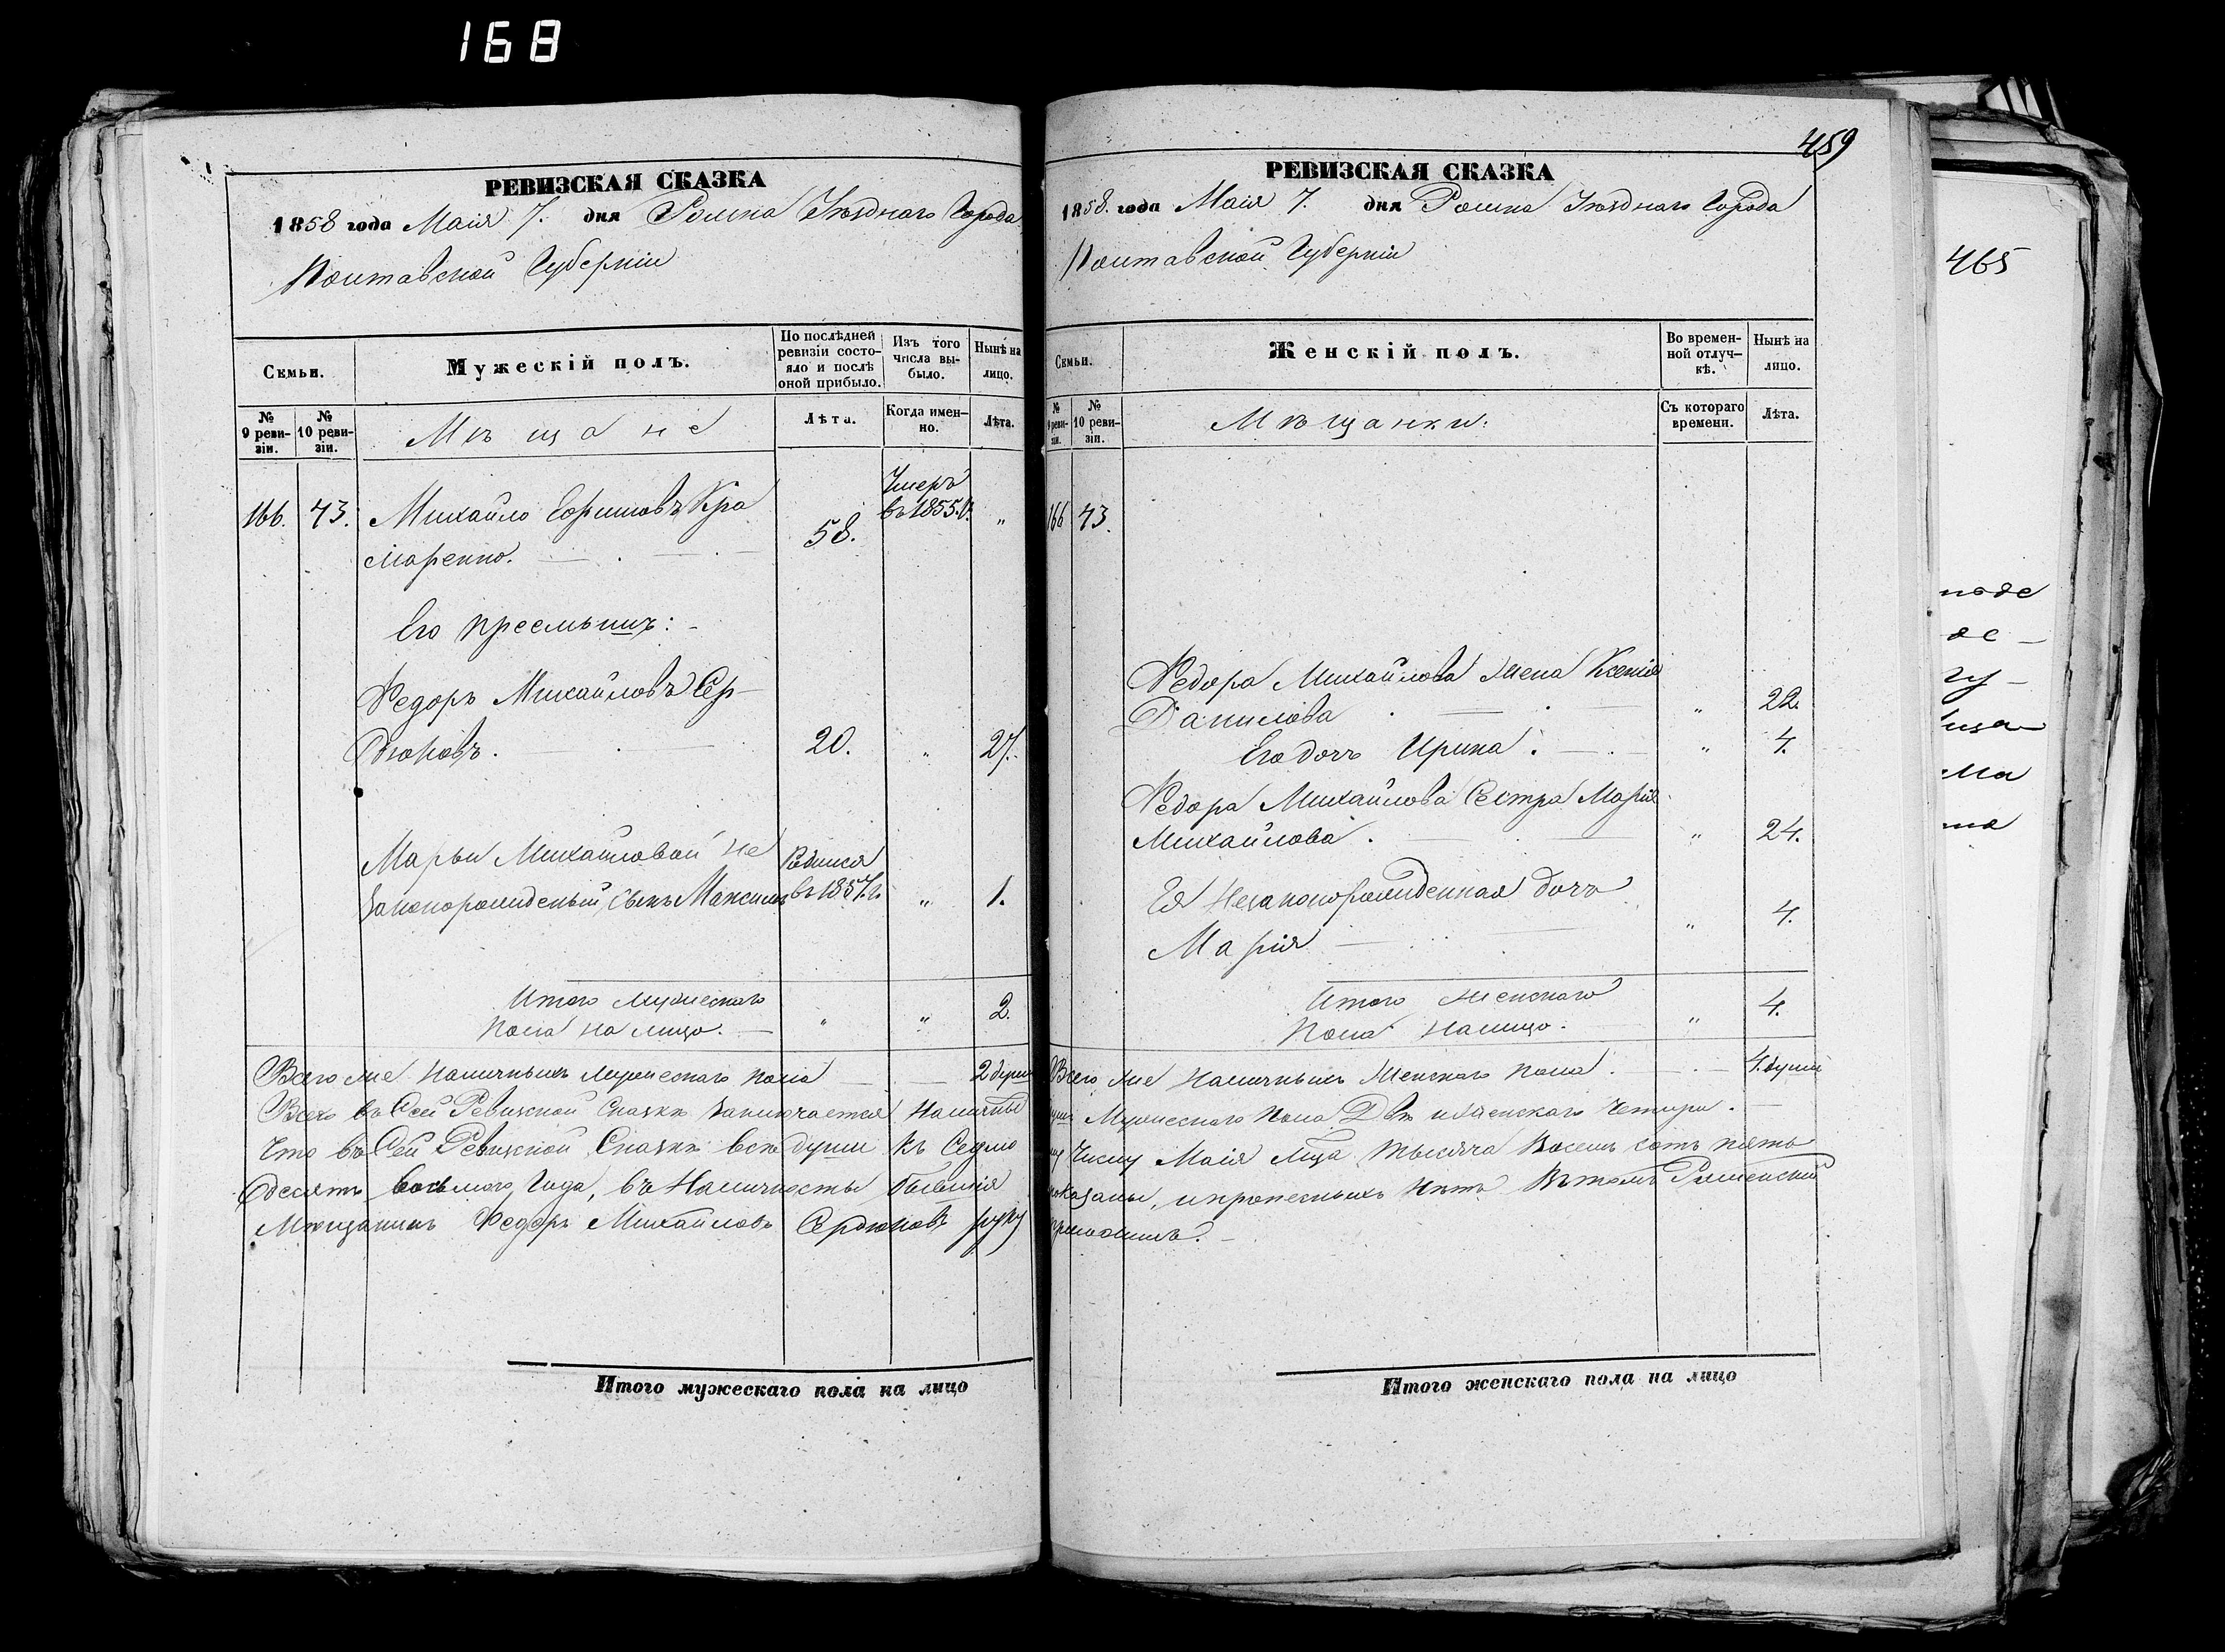 168
РЕВИЗСКАЯ СКАЗКА
1858 года Маія 7. дня Ромна Уѣзднаго Города
Полтавской Губерніи
Семьи.
Мужескій полъ.
По послѣдней ревизіи состояло и послѣ оной прибыло.
Изъ того числа выбыло.
Нынѣ на лицо.
№ 9 ревизіи.
№ 10 ревизіи.
Мѣщане
Лѣта.
Когда именно.
Лѣта.
166. 43. Михайло Ефимовъ Кра
маренко. 58. Умеръ въ 1855. г. "
Его преемникъ:
Федоръ Михайловъ Сер-
дюковъ. 20. " 27.
Марьи Михайловой не
законорожденный сынъ Максимъ Родился въ 1857. г. " 1.
Итого мужескаго
пола на лицо. " " 2.
Всего же наличныхъ мужескаго пола 2 души
Всего въ Сей Ревизской Сказкѣ заключается наличны
Что въ Сей Ревизской Сказкѣ всѣ души къ Седмо
десятъ восьмого года, въ наличности бывшія
Мѣщанинъ Федоръ Михайловъ Сердюковъ руку
Итого мужескаго пола на лицо
459
РЕВИЗСКАЯ СКАЗКА
1858. года Маія 7. дня Ромна Уѣзднаго Города
Полтавской Губерніи
Семьи.
Женскій полъ.
Во временной отлучкѣ.
Нынѣ на лицо.
№ 9 ревизіи.
№ 10 ревизіи.
Мѣщанки.
Съ котораго времени.
Лѣта.
166 43.
Федора Михайлова жена Ксенія
Данилова " 22.
Его дочь Ирина. " 4.
Федора Михайлова Сестра Марія
Михайлова. " 24.
Ея Незаконорожденная дочь
Марія " 4.
Итого женскаго
пола налицо. " 4.
Всего же наличныхъ женскаго пола. 4. души
Мужескаго пола Двѣ и женскаго четыри.
му Числу Маія мца тысяча восемъ сотъ пять
показаны, и прописныхъ нѣтъ Въ томъ Роменскій
приложилъ.
Итого женскаго пола на лицо
465
де
гу
ма